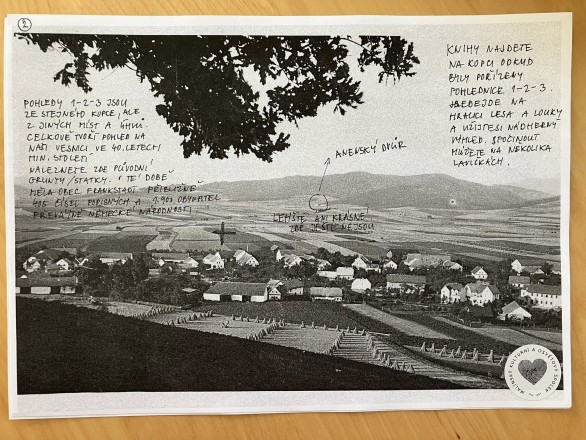 2
POHLEDY 1-2-3 JSOU
ZE STEJNÉHO KOPCE, ALE
Z JINÝCH MÍST A ÚHLŮ.
CELKOVĚ TVOŘÍ POHLED NA
NAŠI VESNICI VE 40. LETECH
MIN. STOLETÍ
NALEZNETE ZDE PŮVODNÍ
GRUNTY / STATKY. V TÉ DOBĚ
MĚLA OBEC FRANKSTADT PŘIBLIŽNĚ
405 ČÍSEL POPISNÝCH A 1.900 OBYVATEL
PŘEVÁŽNĚ NĚMECKÉ NÁRODNOSTI
KNIHY NAJDETE
NA KOPCI ODKUD
BYLY POŘÍZENY
POHLEDNICE 1-2-3.
JDE NA
HRANICI LESA A LOUKY
A UŽIJTE SI NÁDHERNÝ
VÝHLED. SPOČINOUT
MŮŽETE NA NĚKOLIKA
LAVIČKÁCH.
ANENSKÝ DVŮR
LETIŠTĚ ANI KRÁSNÉ
ZDE JEŠTĚ NEJSOU
MALÍNSKÝ KULTURNÍ A OSVĚTOVÝ SPOLEK